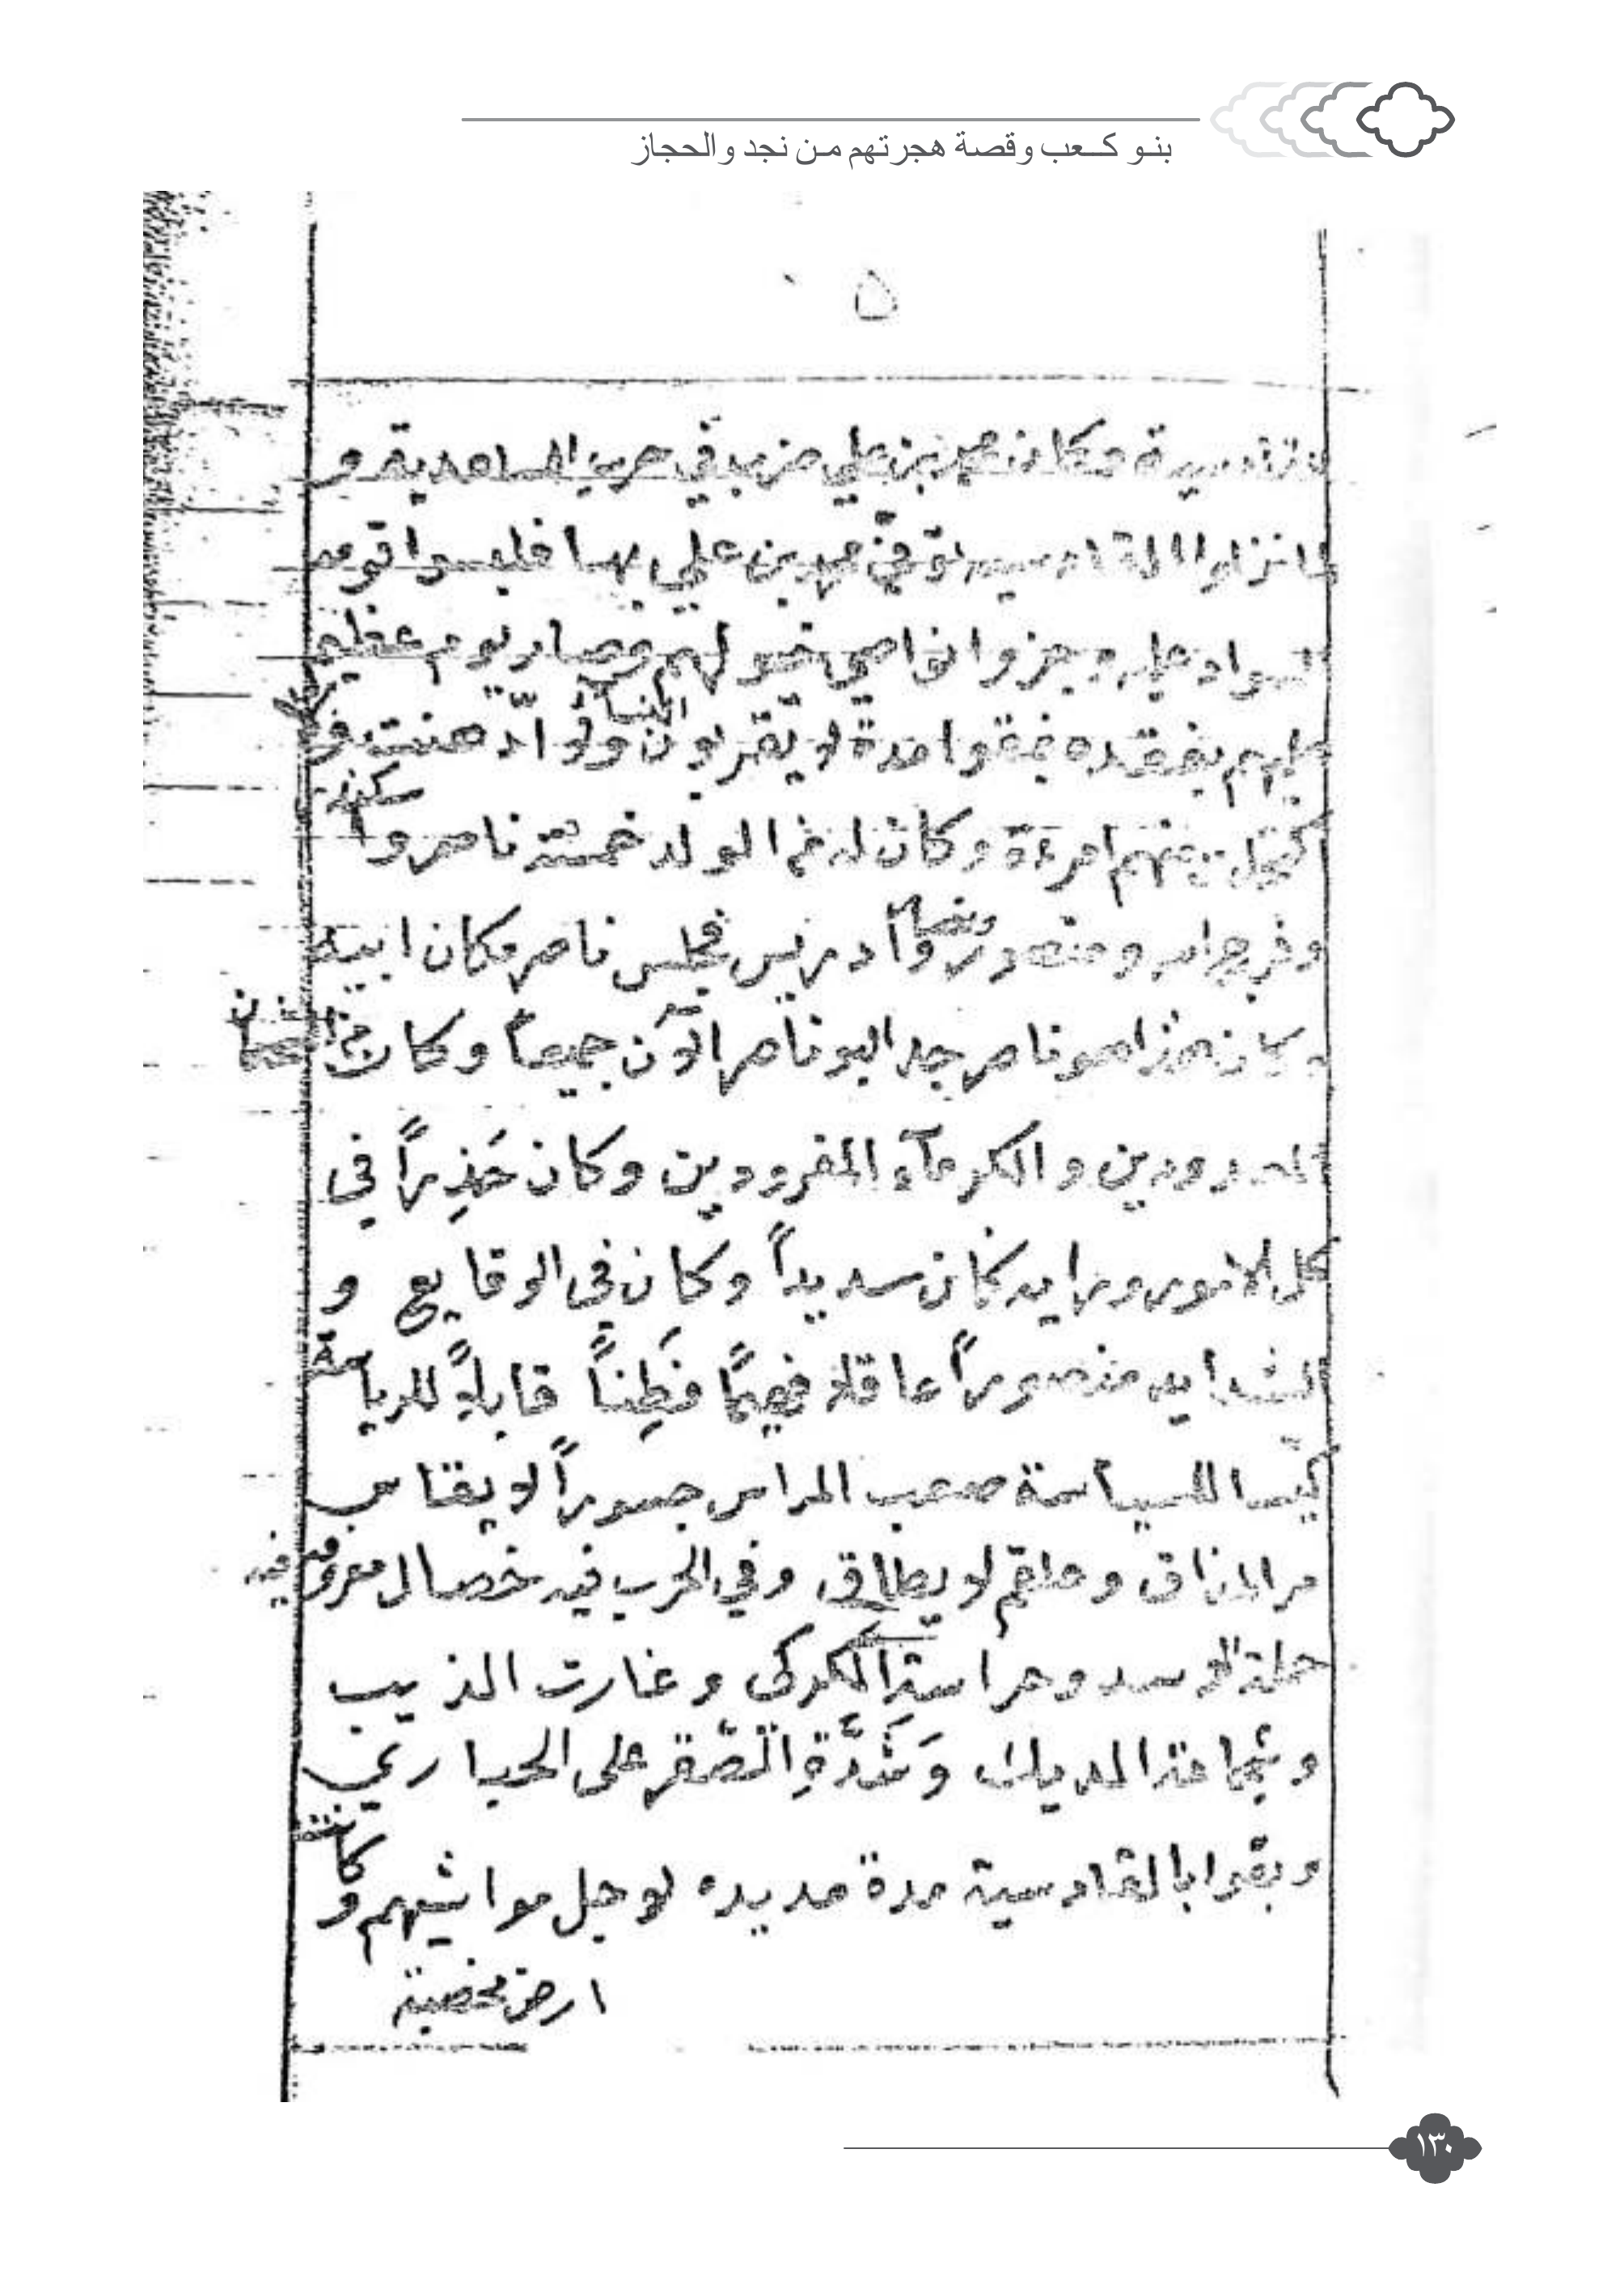 بنو كعب وقصة هجرتهم من نجد والحجاز
٥
وكان محمد بن علي ضرب في حرب المساعديه و
لما نزلوا القادسيه توفي محمد بن علي بها فلبسوا قومه
السواد عليه وجزوا نواصي خيولهم وصار يوم عظيم
عليهم بفقده فبقوا مدة لا يقربون النساء ولا ادّهنت
منهم امرءة وكان له من الولد خمسة ناصر و
وفرج الله ومنصور وادريس فجلس ناصر مكان ابيه
وكان هذا هو ناصر جد البو ناصر الآن جميعاً وكان من
المعدودين والكرمآء المفرودين وكان حَذِراً في
كل الامور ورايه كان سديداً وكان في الوقايع و
الشدايد منصوراً عاقلا فهيماً فَطِناً قابلاً للرياسة
كيّسا للسياسة صعب المراس جسوراً لا يقاس
مر المذاق وعلقم لا يطاق وفي الحرب فيه خصال معروفه فيه
حملة الاسد وحراسة الكركي وغارت الذيب
وشجاعة الديك وَشَدَّةِ الصَّقر على الحباري
وبقوا بالقادسية مدة مديده لاجل مواشيهم وكانت
ارض مخصبة
١٣٠